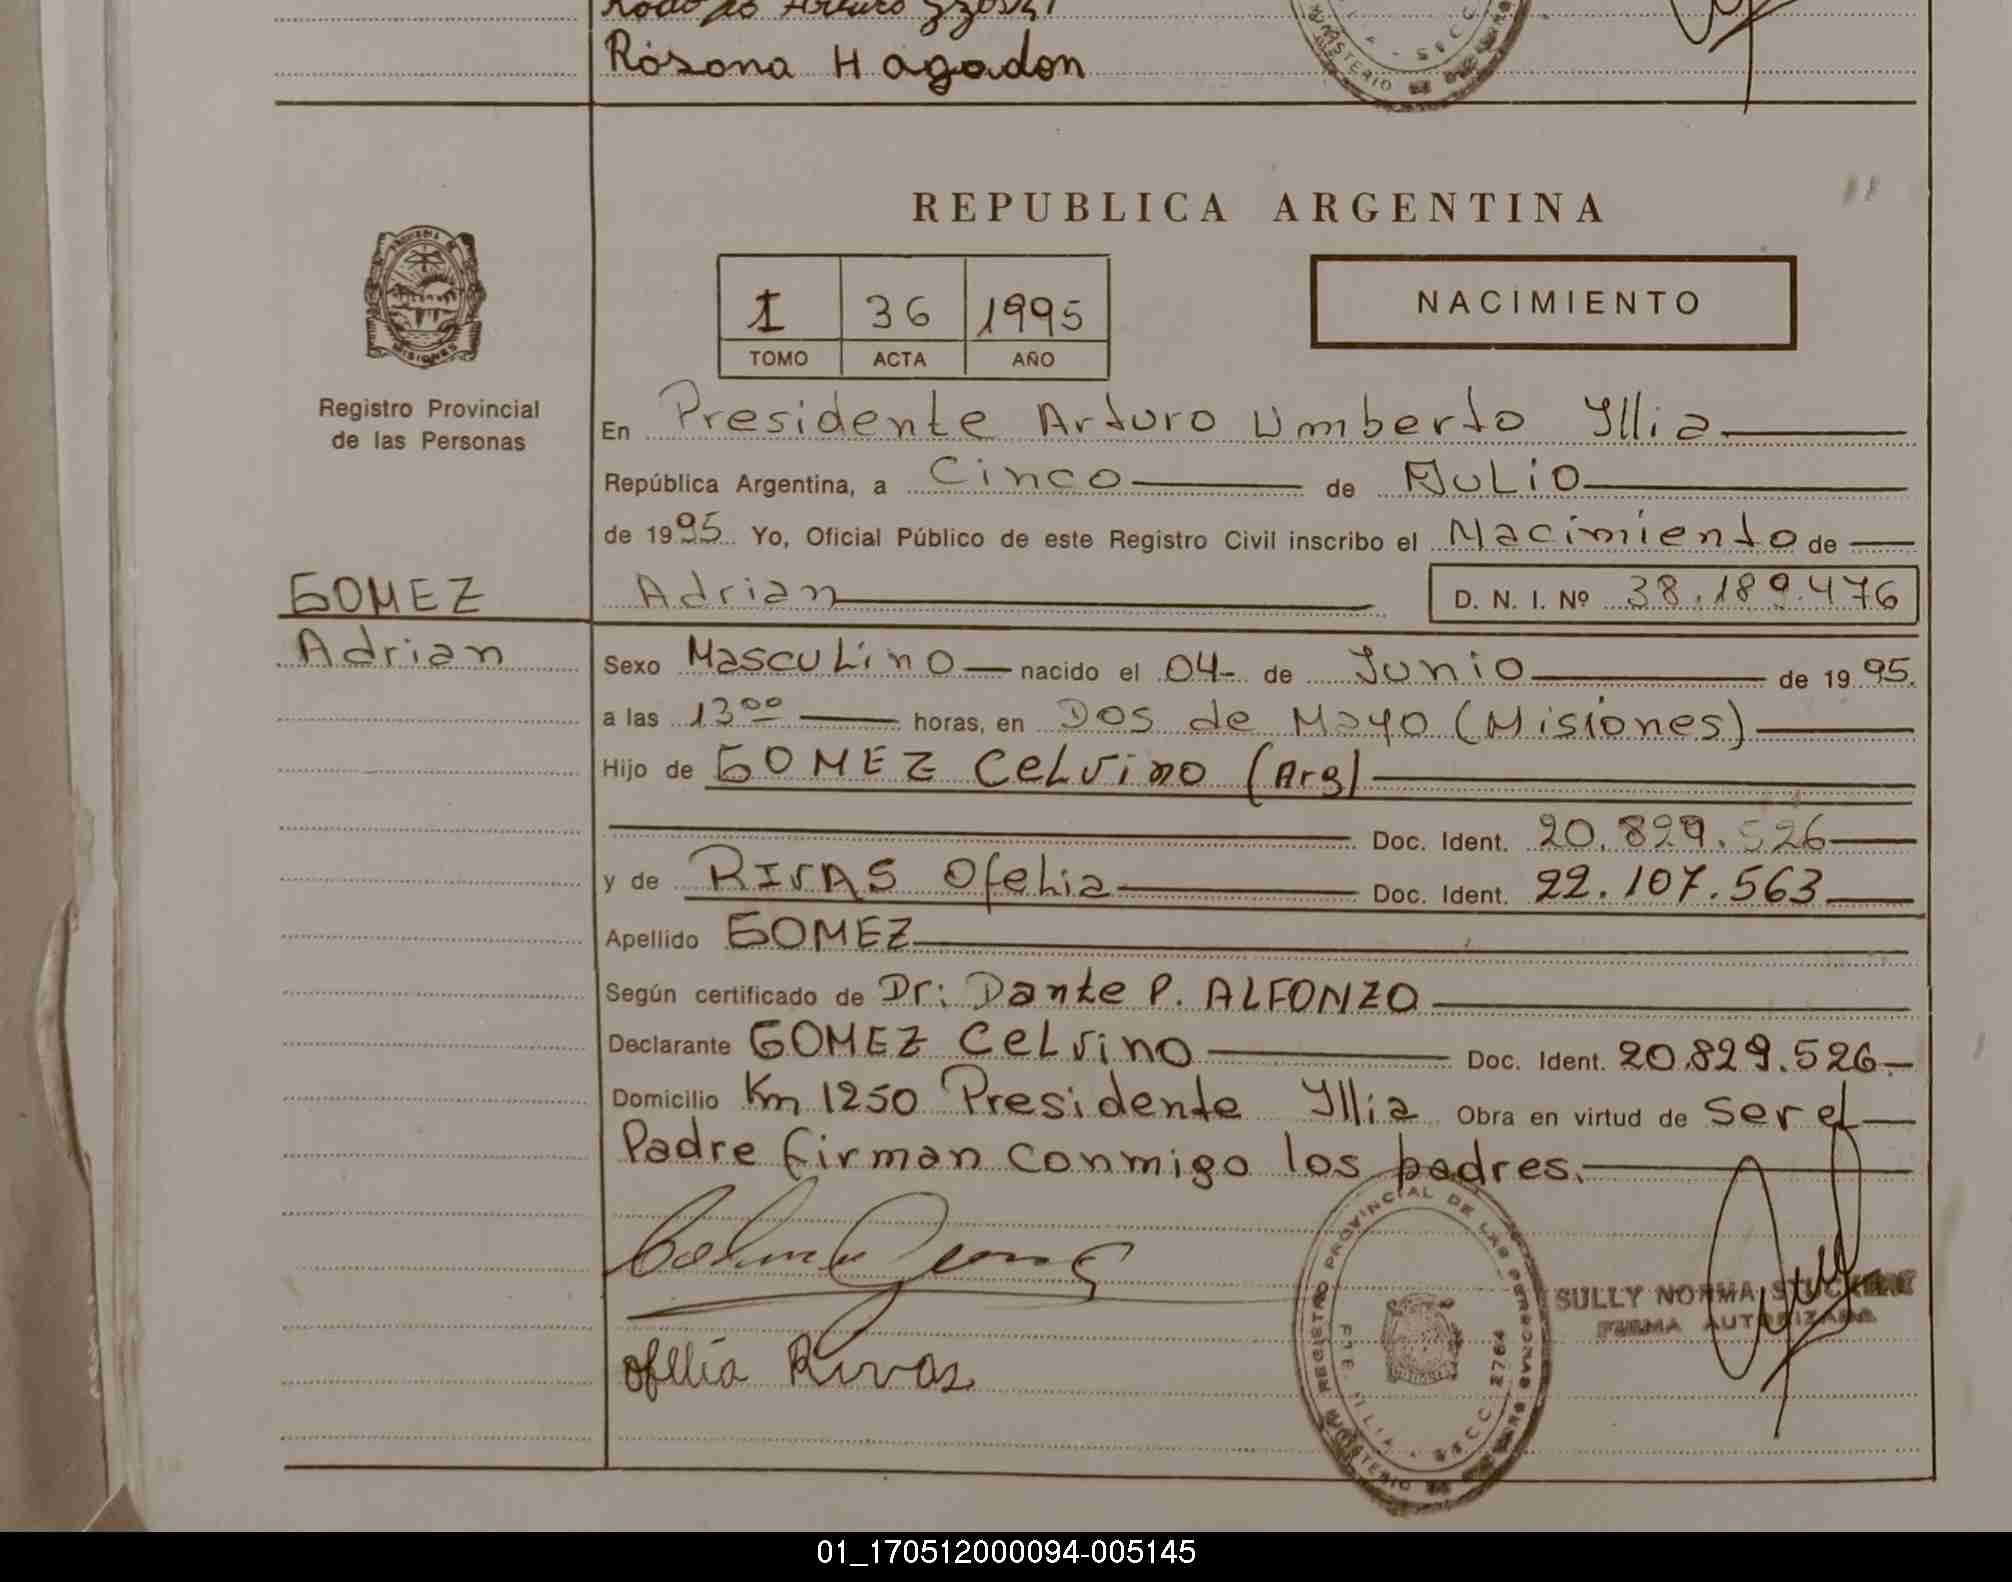 Rosona Hagadon
REPUBLICA ARGENTINA
1 36 1995
TOMO ACTA AÑO
NACIMIENTO
MISIONES
Registro Provincial
de las Personas
En Presidente Arturo Umberto Yllia
República Argentina, a Cinco de Julio
de 1995 Yo, Oficial Público de este Registro Civil inscribo el Nacimiento de
GOMEZ Adrian D. N. I. Nº 38.189.476
Adrian
Sexo Masculino nacido el 04 de Junio de 1995.
a las 13⁰⁰ horas, en Dos de Mayo (Misiones)
Hijo de GOMEZ Celvino (Arg)
Doc. Ident. 20.829.526
y de RIVAS Ofelia Doc. Ident. 22.107.563
Apellido GOMEZ
Según certificado de Dr: Dante P. ALFONZO
Declarante GOMEZ Celvino Doc. Ident. 20.829.526
Domicilio Km 1250 Presidente Yllia Obra en virtud de ser el
Padre firman conmigo los padres.
REGISTRO PROVINCIAL DE LAS PERSONAS
SECC. 2764
SULLY NORMA
FIRMA AUTORIZADA
ofelia Rivas
01_170512000094-005145